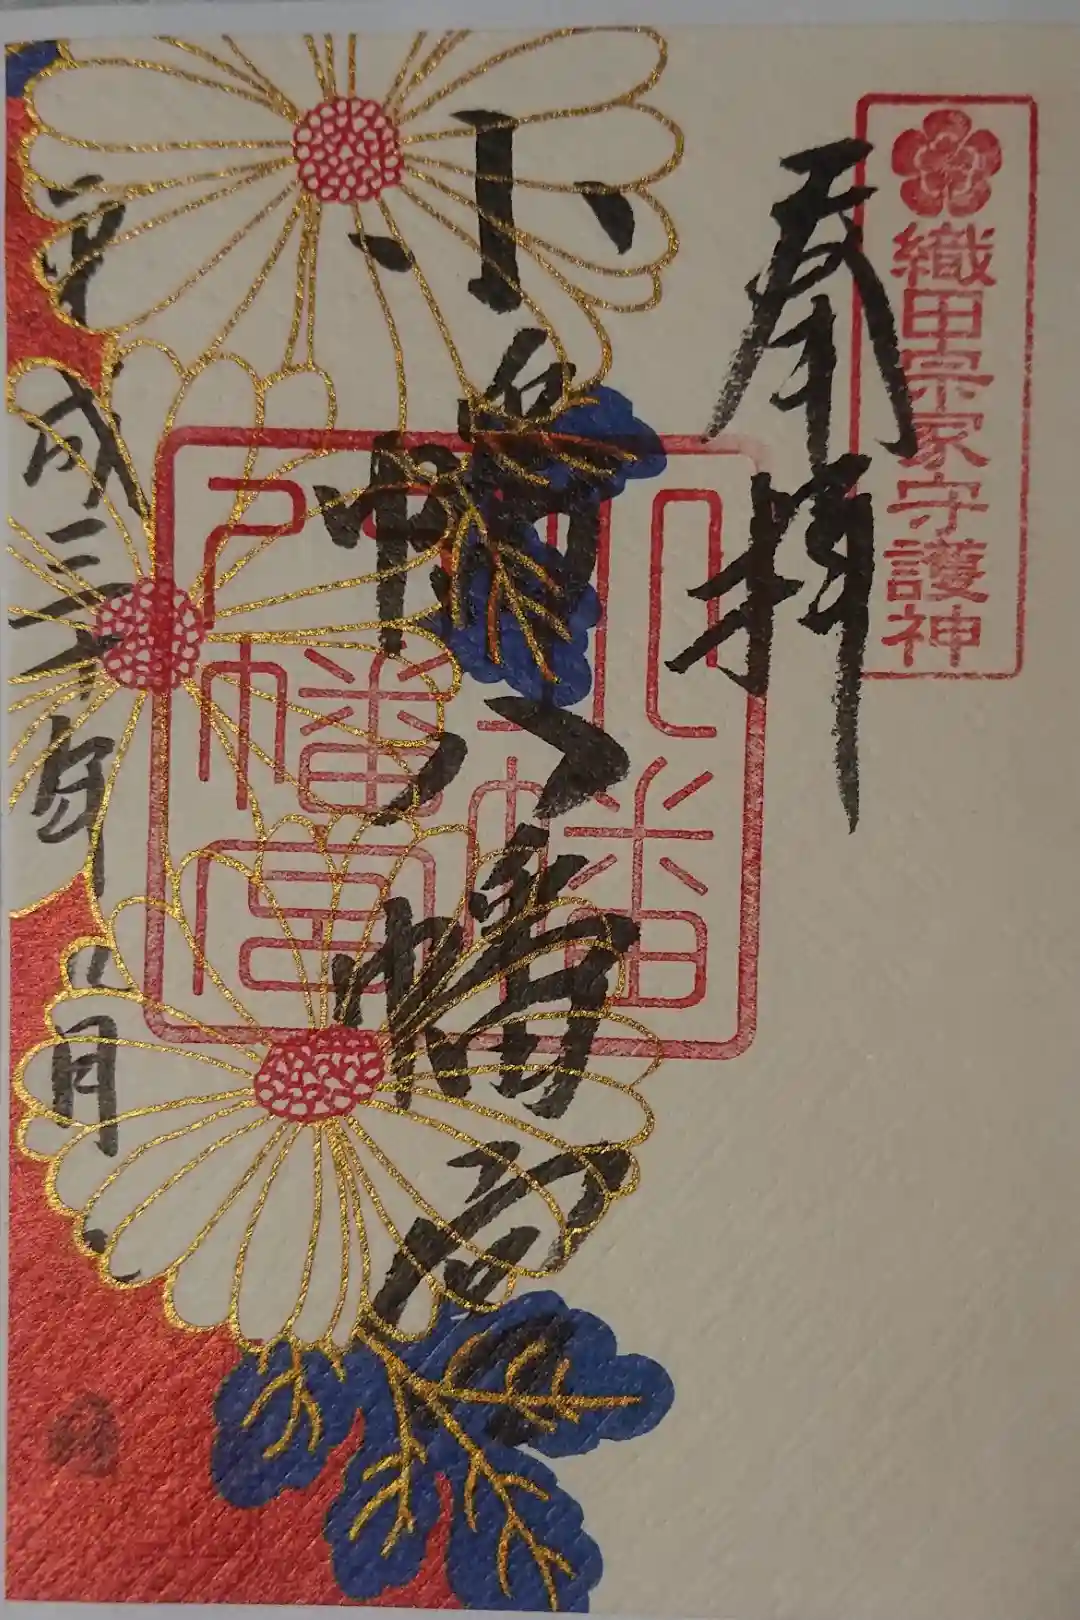 織田宗家守護神
奉拝
小幡八幡宮
小幡
八幡宮
平成三十年 月